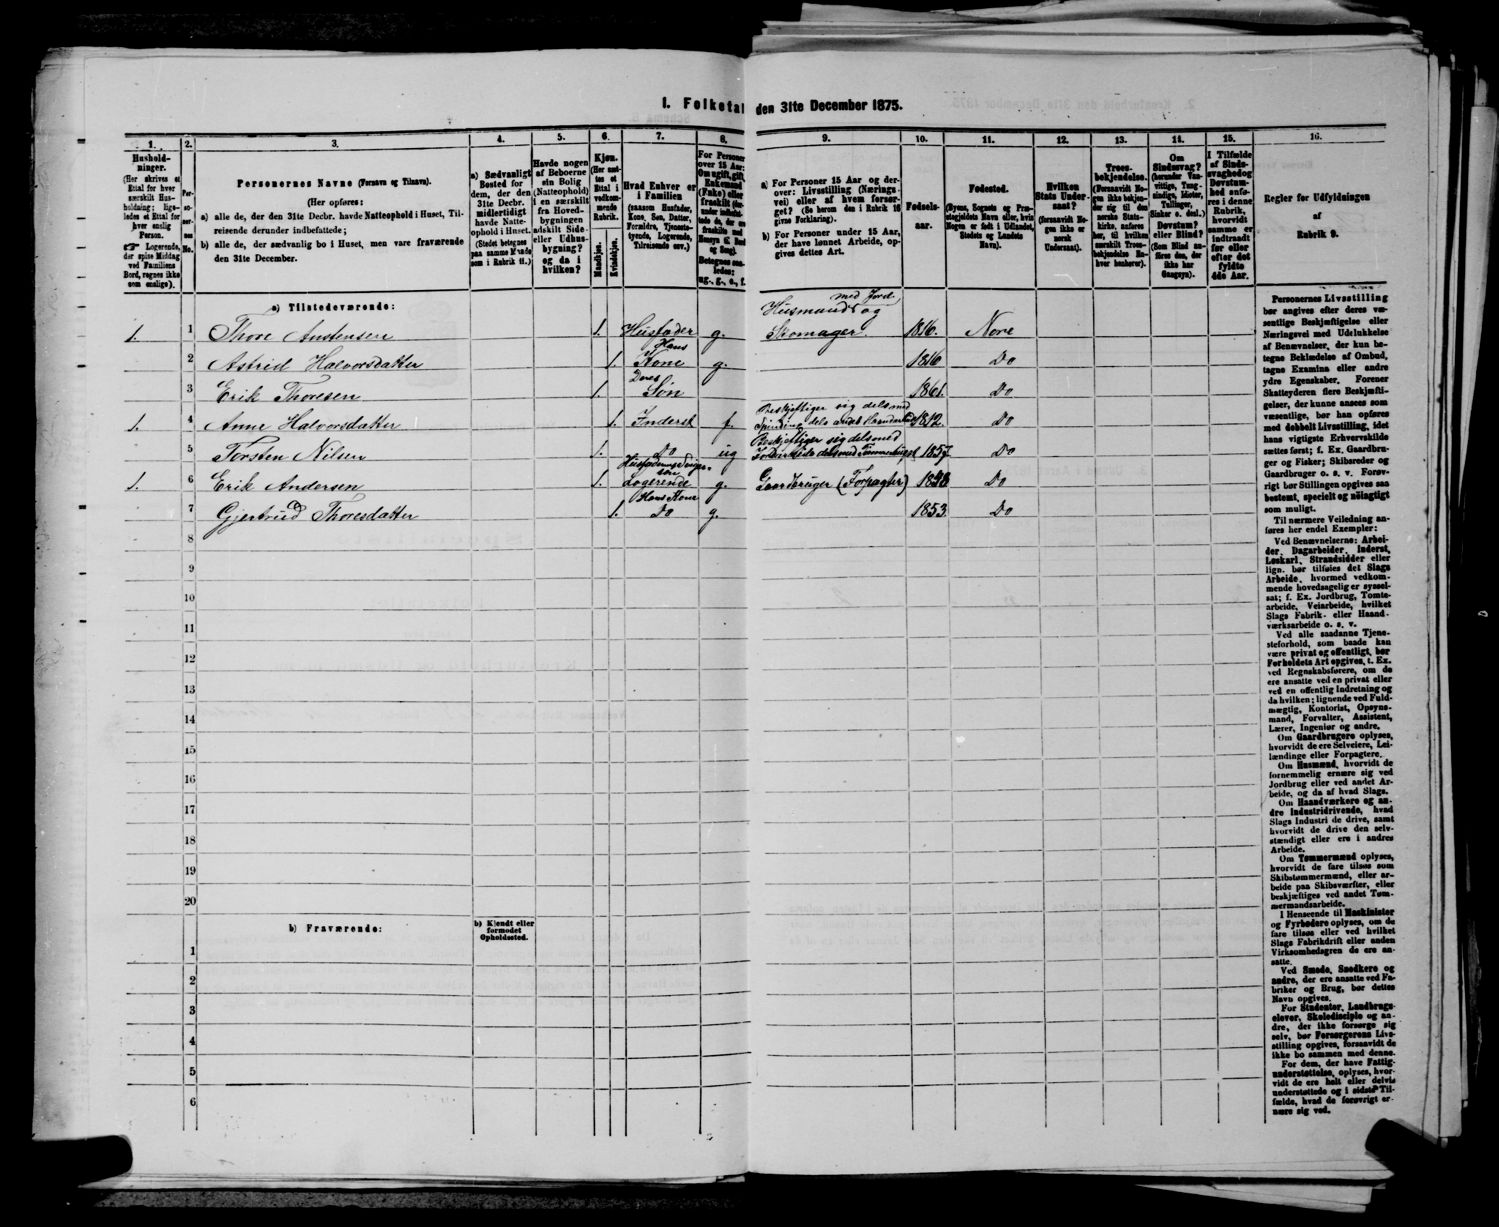 I. Folketal den 31te December 1875.
1. 2. 3. 4. 5. 6. 7. 8. 9. 10. 11. 12. 13. 14. 15. 16.
Husholdninger.
(Her skrives et Ettal for hver særskilt Husholdning; ligeledes et Ettal for hver enslig Person.
☞ Logerende, der spise Middag ved Familiens Bord, regnes ikke som enslige).
Personernes No.
Personernes Navne (Fornavn og Tilnavn).
(Her opføres:
a) alle de, der den 31te Decbr. havde Natteophold i Huset, Tilreisende derunder indbefattede;
b) alle de, der sædvanlig bo i Huset, men vare fraværende den 31te December.
a) Sædvanligt Bosted for dem, der den 31te Decbr. midlertidigt havde Natteophold i Huset.
(Stedet betegnes paa samme Maade som i Rubrik 11.)
Havde nogen af Beboerne sin Bolig (Natteophold) i en særskilt fra Hovedbygningen adskilt Side- eller Udhusbygning? og da i hvilken?
Kjøn.
(Her sættes et Ettal i vedkommende Rubrik.
Mandkjøn.
Kvindekjøn.
Hvad Enhver er i Familien
(saasom Husfader, Kone, Søn, Datter, Forældre, Tjenestetyende, Logerende, Tilreisende osv.)
For Personer over 15 Aar: Om ugift, gift, Enkemand (Enke) eller fraskilt
Betegnes saaledes: ug., g., e., f.
a) For Personer 15 Aar og derover: Livsstilling (Næringsvei) eller af hvem forsørget? (Se herom den i Rubrik 16 givne Forklaring).
b) For Personer under 15 Aar, der have lønnet Arbeide, opgives dettes Art.
Fødselsaar.
Fødested.
(Byens, Sognets og Præstegjeldets Navn eller, hvis Nogen er født i Udlandet, Stedets og Landets Navn).
Hvilken Stats Undersaat?
(forsaavidt Nogen ikke er norsk Undersaat).
Troesbekjendelse.
(Forsaavidt Nogen ikke bekjender sig til den norske Statskirke, anføres her, til hvilken særskilt Troesbekjendelse Enhver henhører).
Om Sindssvag? (herunder Vanvittige, Tungsindige, Idioter, Tullinger, Sinker o. desl.) Døvstum? eller Blind?
(Som Blind anføres den, der ikke har Gangsyn).
I Tilfælde af Sindssvaghed og Døvstumhed anføres i denne Rubrik, hvorvidt samme er indtraadt før eller efter det fyldte 4de Aar.
Regler for Udfyldningen
af
Rubrik 9.
a) Tilstedeværende:
1. 1 Thore Anstensen 1. Husfader g. Husmand med Jord og Skomager 1816. Nore
2 Astrid Halvorsdatter 1. Hans Kone g. 1816 Do
3 Erik Thoresen 1. Deres Søn 1861. Do
1. 4 Anne Halvorsdatter 1. Inderst f. Beskjeftiger sig dels med Spinding dels andet Haandarbeide 1812. Do
5 Torsten Nilsen 1. Do ug Beskjeftiger sig dels med Jordarbeide dels med Tømmerhugst 1857. Do
1. 6 Erik Andersen 1. Husfaderens Svigersøn Logerende g. Gaardbruger (Forpagter) Do
7 Gjertrud Thoresdatter 1. Hans Kone Do g. 1853. Do
8
9
10
11
12
13
14
15
16
17
18
19
20
b) Fraværende:
b) Kjendt eller formodet Opholdssted.
1
2
3
4
5
6
Personernes Livsstilling bør angives efter deres væsentlige Beskjæftigelse eller Næringsvei med Udelukkelse af Benævnelser, der kun betegne Beklædelse af Ombud, tagne Examina eller andre ydre Egenskaber. Forener Skatteyderen flere Beskjæftigelser, der kunne ansees som væsentlige, bør han opføres med dobbelt Livsstilling, idet hans vigtigste Erhvervskilde sættes først; f. Ex. Gaardbruger og Fisker; Skibsreder og Gaardbruger o. s. v. Forøvrigt bør Stillingen opgives saa bestemt, specielt og nøiagtigt som muligt.
Til nærmere Veiledning anføres her endel Exempler:
Ved Benævnelserne: Arbeider, Dagarbeider, Inderst, Løskarl, Strandsidder eller lign. bør tilføies det Slags Arbeide, hvormed vedkommende hovedsagelig er sysselsat; f. Ex. Jordbrug, Tomtearbeide, Veiarbeide, hvilket Slags Fabrik- eller Haandværksarbeide o. s. v.
Ved alle saadanne Tjenesteforhold, som baade kan være privat og offentligt, bør Forholdets Art opgives, t. Ex. ved Regnskabsførere, om de ere ansatte ved en privat eller ved en offentlig Indretning og da hvilken; lignende ved Fuldmægtig, Kontorist, Opsynsmand, Forvalter, Assistent, Lærer, Ingeniør og andre.
Om Gaardbrugere oplyses, hvorvidt de ere Selveiere, Leilændinge eller Forpagtere.
Om Husmænd, hvorvidt de fornemmelig ernære sig ved Jordbrug eller ved andet Arbeide, og da af hvad Slags.
Om Haandværkere og andre Industridrivende, hvad Slags Industri de drive, samt hvorvidt de drive den selvstændigt eller ere i andres Arbeide.
Om Tømmermænd oplyses, hvorvidt de fare tilsøs som Skibstømmermænd, eller arbeide paa Skibsværfter, eller beskjæftiges ved andet Tømmermandsarbeide.
I Henseende til Maskinister og Fyrbødere oplyses, om de fare tilsøs eller ved hvilket Slags Fabrikdrift eller anden Virksomhedsgren de ere ansatte.
Ved Smede, Snedkere og andre, der ere ansatte ved Fabriker og Brug, bør dettes Navn opgives.
For Studenter, Landbrugselever, Skoledisciple og andre, der ikke forsørge sig selv, bør Forsørgerens Livsstilling opgives, forsaavidt de ikke bo sammen med denne.
For dem, der have Fattigunderstøttelse, oplyses, hvorvidt de ere helt eller delvis understøttede og i sidste Tilfælde, hvad de forøvrigt ernære sig ved.